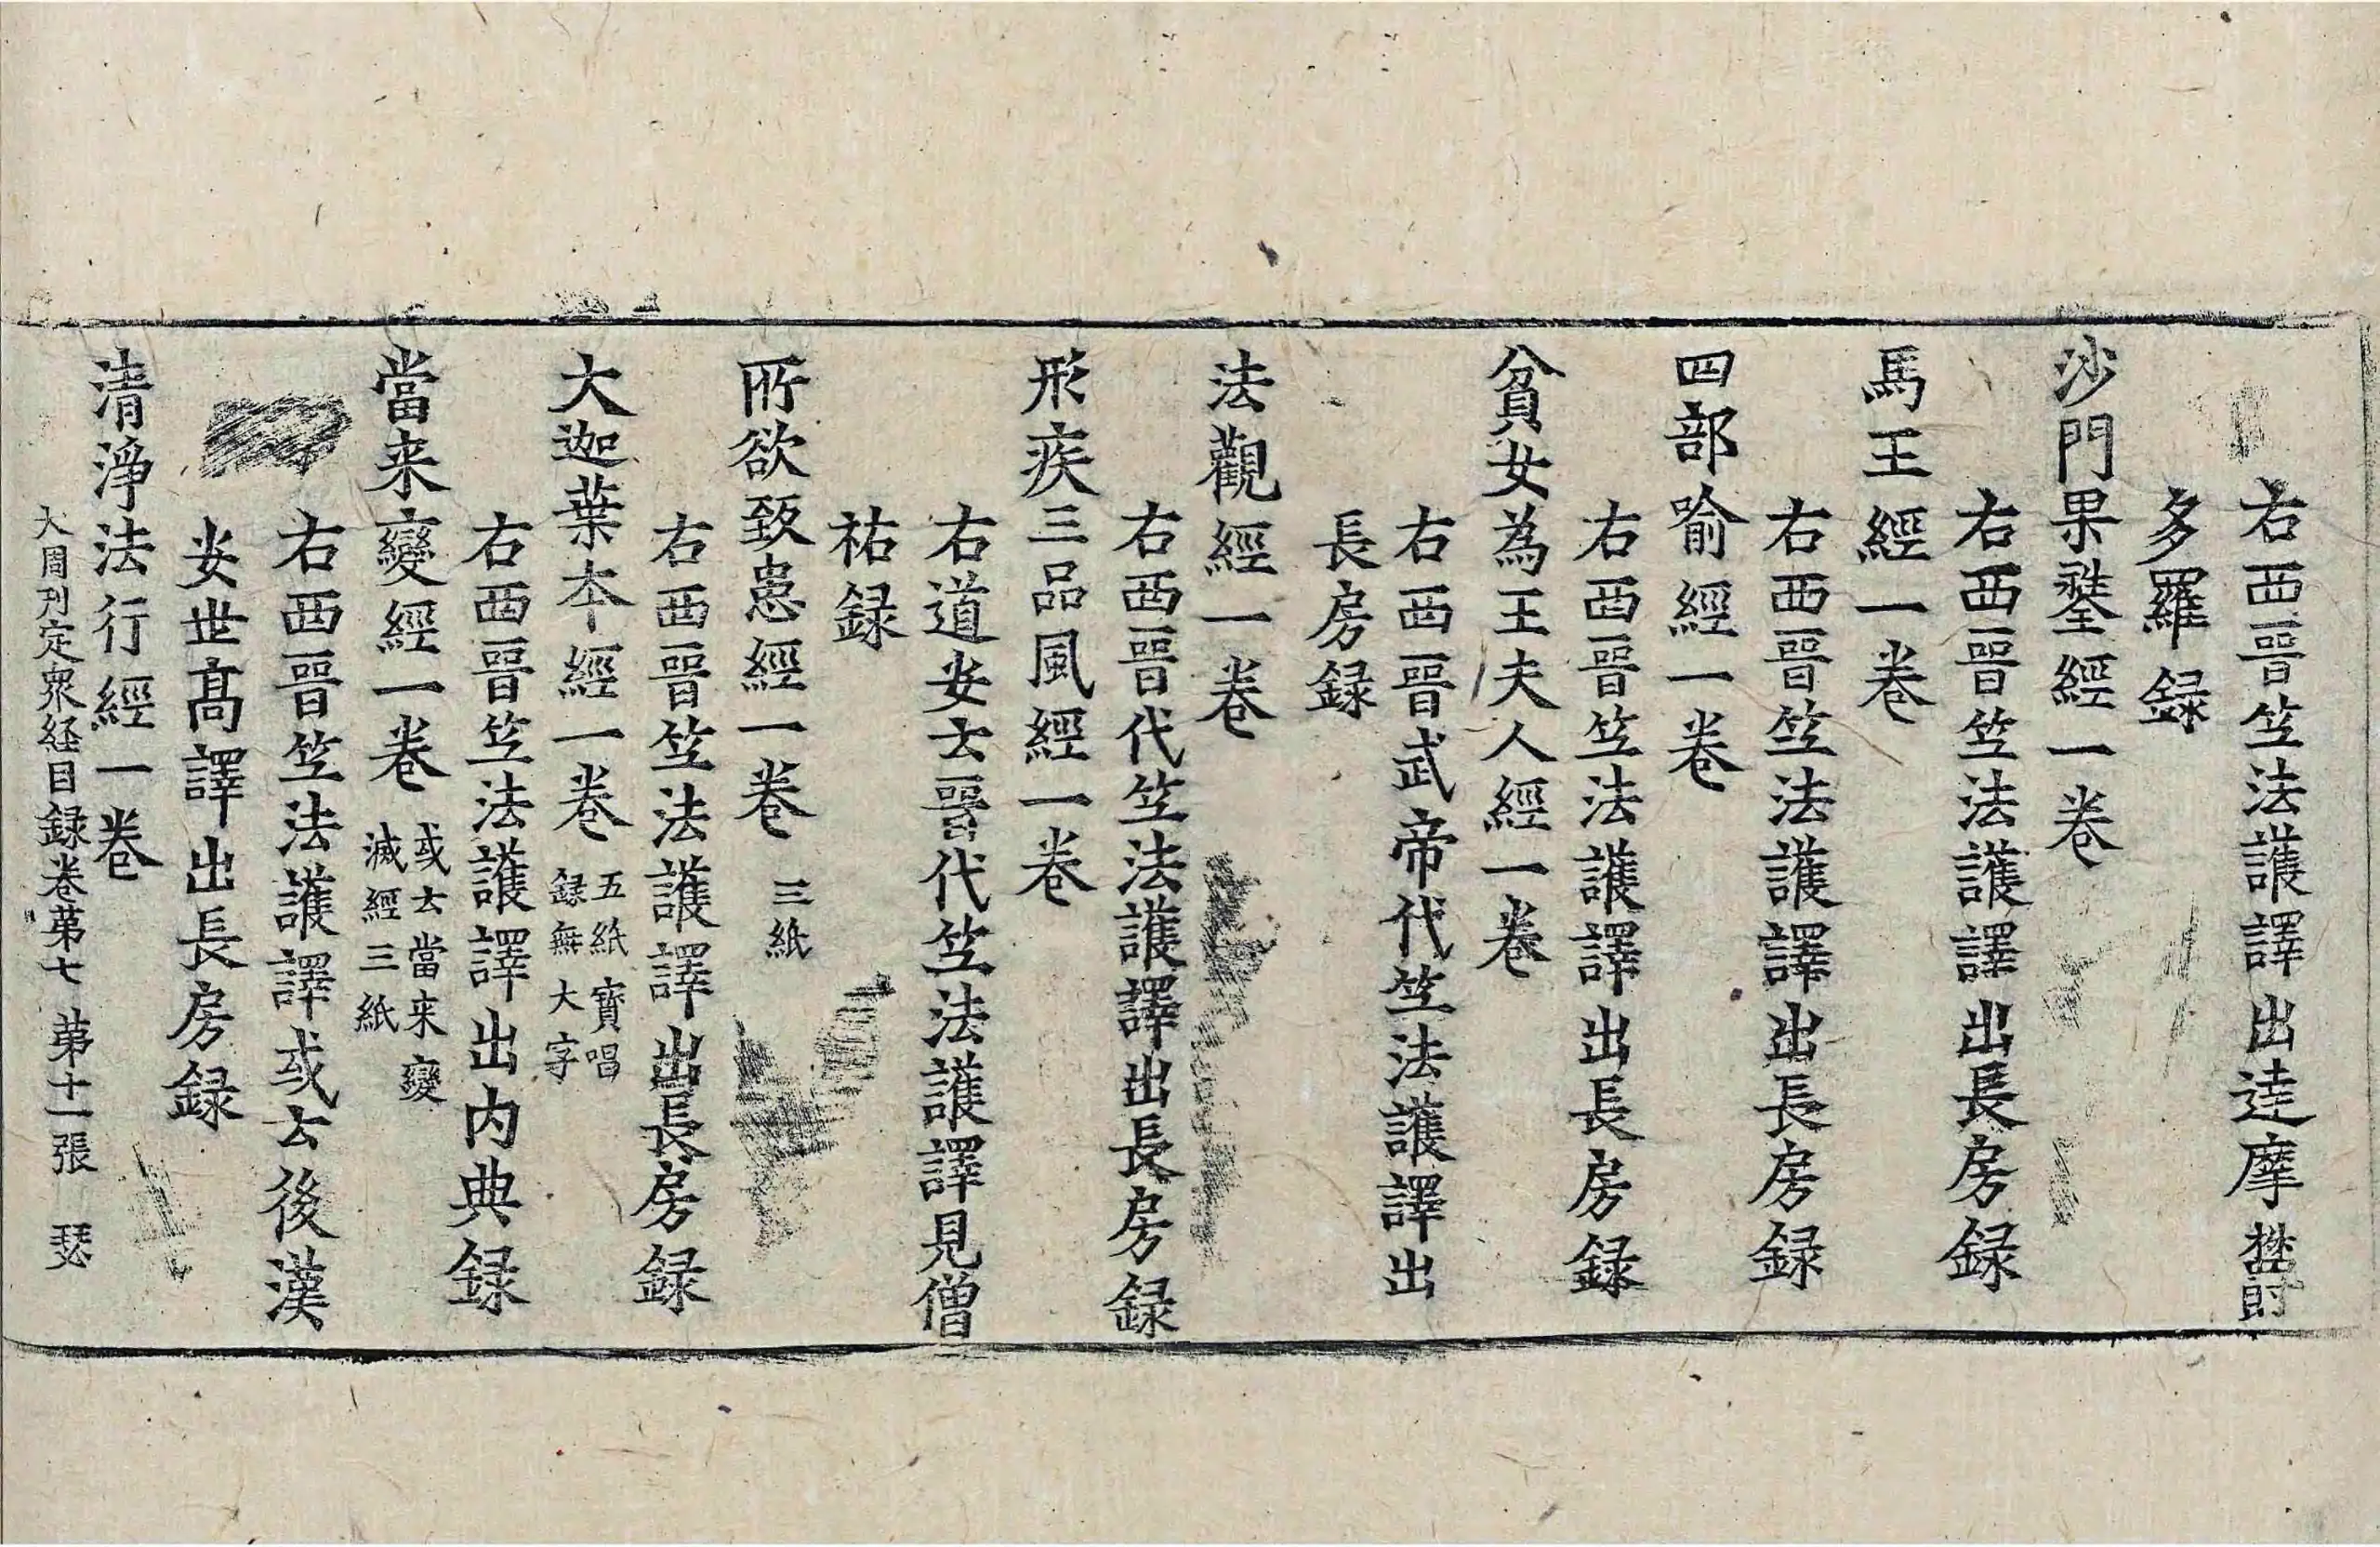 右西晉竺法護譯出達摩欝
多羅録
沙門果𨭻經一卷
右西晉竺法護譯出長房録
馬王經一卷
右西晉竺法護譯出長房録
四部喻經一卷
右西晉竺法護譯出長房録
貧女為王夫人經一卷
右西晉武帝代竺法護譯出
長房録
法觀經一卷
右西晉代竺法護譯出長房録
形疾三品風經一卷
右道安云晉代竺法護譯見僧
祐録
所欲致患經一卷 三紙
右西晉竺法護譯出長房録
大迦葉本經一卷 五紙寶唱
録無大字
右西晉竺法護譯出内典録
當来變經一卷 或云當来變
滅經三紙
右西晉竺法護譯或云後漢
安世髙譯出長房録
清淨法行經一卷
大周刋定衆経目録卷苐七 苐十一張 瑟